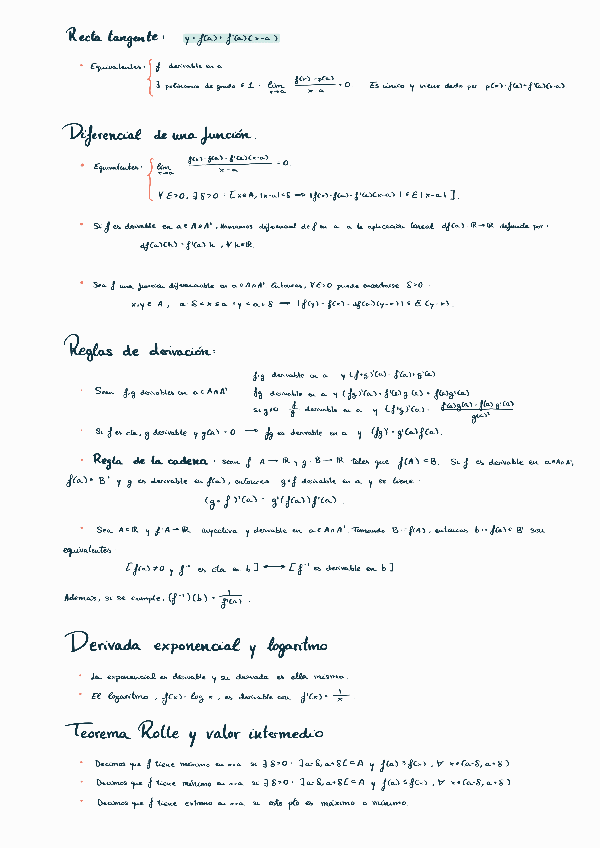 Recta tangente: y = f(a) + f'(a)(x-a)
• Equivalentes: f derivable en a
∃ polinomio de grado ≤ 1 : lim x→a f(x)-p(x) / x-a = 0 Es único y viene dado por p(x) = f(a) + f'(a)(x-a)
Diferencial de una función.
• Equivalentes: lim x→a f(x)-f(a)-f'(a)(x-a) / x-a = 0
∀ε>0, ∃δ>0 : [x∈A, |x-a|<δ ⟹ |f(x)-f(a)-f'(a)(x-a)| ≤ ε|x-a|].
• Si f es derivable en a∈A∩A', llamamos diferencial de f en a a la aplicación lineal df(a) ℝ→ℝ definida por:
df(a)(h) = f'(a)h, ∀h∈ℝ.
• Sea f una función diferenciable en a∈A∩A'. Entonces, ∀ε>0 puede encontrarse δ>0 :
x,y∈A, a-δ<x≤a≤y<a+δ ⟹ |f(y)-f(x)-df(a)(y-x)| ≤ ε(y-x).
Reglas de derivación:
f+g derivable en a y (f+g)'(a) = f'(a)+g'(a)
• Sean f,g derivables en a∈A∩A' fg derivable en a y (fg)'(a) = f'(a)g(a) + f(a)g'(a)
si g≠0 f/g derivable en a y (f/g)'(a) = f'(a)g(a)-f(a)g'(a) / g(a)²
• Si f es cta, g derivable y g(a)=0 ⟶ fg es derivable en a y (fg)' = g'(a)f(a).
• Regla de la cadena: sean f: A→ℝ y g: B→ℝ tales que f(A)⊂B. Si f es derivable en a∈A∩A',
f(a)∈B' y g es derivable en f(a), entonces g∘f derivable en a y se tiene:
(g∘f)'(a) = g'(f(a))f'(a).
• Sea A⊂ℝ y f: A→ℝ inyectiva y derivable en a∈A∩A'. Tomando B = f(A), entonces b = f(a)∈B' son
equivalentes
[f'(a)≠0 y f⁻¹ es cta en b] ⟷ [f⁻¹ es derivable en b]
Además, si se cumple, (f⁻¹)'(b) = 1/f'(a).
Derivada exponencial y logaritmo
• La exponencial es derivable y su derivada es ella misma.
• El logaritmo, f(x) = log x, es derivable con f'(x) = 1/x
Teorema Rolle y valor intermedio
• Decimos que f tiene máximo en x=a si ∃δ>0 : ]a-δ, a+δ[⊂A y f(a)≥f(x), ∀x∈(a-δ, a+δ)
• Decimos que f tiene mínimo en x=a si ∃δ>0 : ]a-δ, a+δ[⊂A y f(a)≤f(x), ∀x∈(a-δ, a+δ)
• Decimos que f tiene extremo en x=a si este pto es máximo o mínimo.